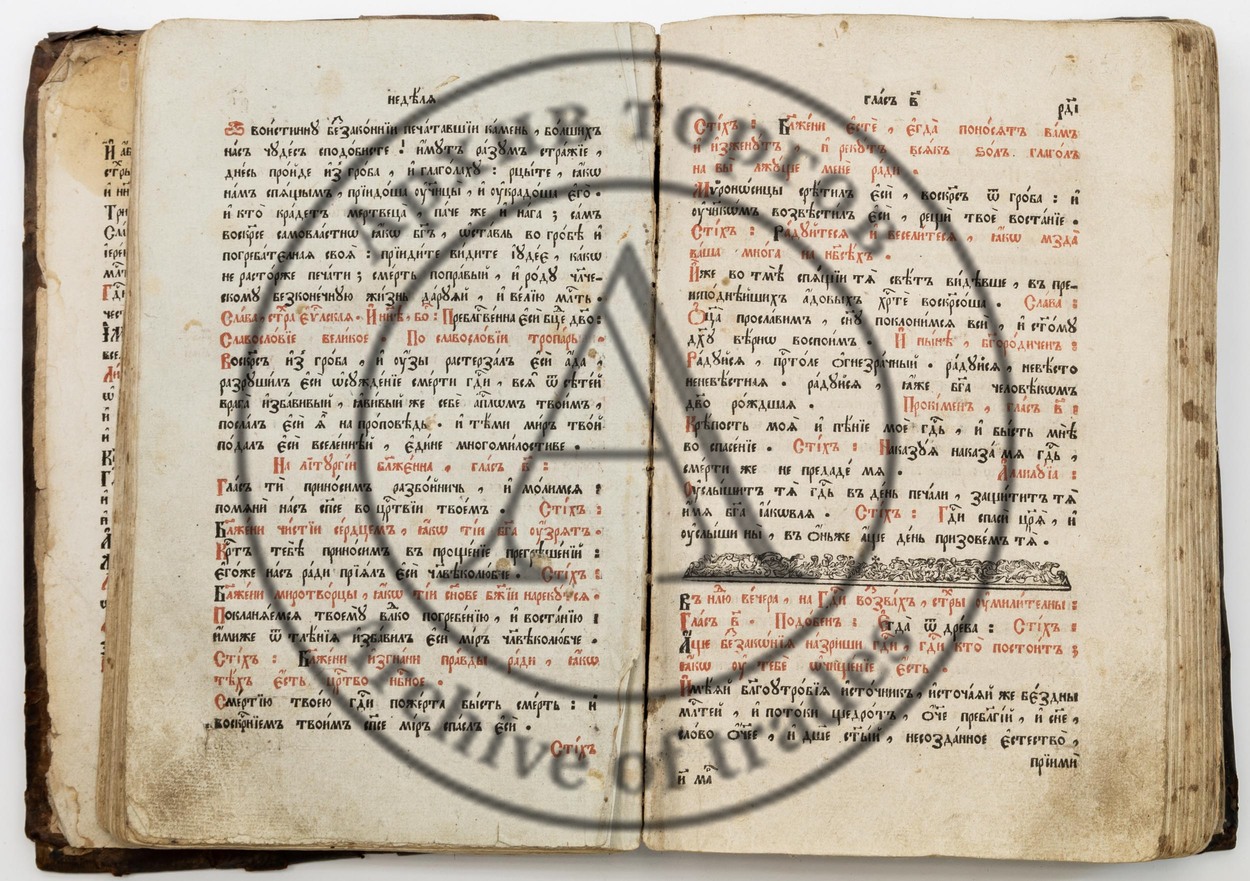 недѣ́лѧ
воистинну беззаконнїи печатавшїи камень, болшихъ
насъ чудесъ сподобисте ! имутъ разумъ стражїе,
днесь проиде из гроба, и глаголаху : рцыте, ꙗкѡ
намъ спѧщымъ, прїидоша ѹчн҃цы, и украдоша его.
и кто крадетъ мертвеца, паче же и нага ; самъ
воскр҃се самовластнѡ ꙗкѡ бг҃ъ, ѡставль во гробѣ и
погребателнаѧ своѧ : прїидите видите їудее, какѡ
не расторже печати ; смерть поправый, и роду чл҃че-
скому безконечную жизнь даруѧй, и велїю млⷭ҇ть.
Слава, стⷯра еѵⷢ҇лскаѧ. И нн҃ѣ, бо : Преблагⷭ҇венна еси бц҃е дв҃о:
Славословїе великое. По славословїи тропарь.
Воскр҃съ из гроба, и ѹзы растерзалъ еси ада,
разрушилъ еси ѡсужденїе смерти гдⷭ҇и, всѧ ѿ сѣтей
врага избавивый, ꙗвивый же себе апⷭ҇лѡмъ твоимъ,
послалъ еси ѧ на проповѣдь. и тѣми миръ твой
подалъ еси вселеннѣй, едине многомилостиве.
На лїтургїи блаженна, гласъ в҃ :
Гласъ ти приносимъ разбойничь, и молимсѧ :
помѧни насъ сп҃се во црⷭ҇твїи твоемъ. Стїхъ :
Блажени чистїи сердцемъ, ꙗкѡ тїи бг҃а ѹзрѧтъ.
Крⷭ҇тъ тебѣ приносимъ въ прощенїе прегрѣшенїй :
егоже насъ ради прїѧлъ еси чл҃вѣколюбче. Стїхъ :
Блажени миротворцы, ꙗкѡ тїи сн҃ове бж҃їи нарекутсѧ.
Покланѧемсѧ твоему влⷣко погребенїю, и востанїю :
имиже ѿ тлѣнїѧ избавилъ еси мїръ чл҃вѣколюбче.
Стїхъ : Блажени изгнани правды ради, ꙗкѡ
тѣхъ есть црⷭ҇тво нбⷭ҇ное.
Смертїю твоею гдⷭ҇и пожерта бысть смерть : и
воскрⷭ҇нїемъ твоимъ сп҃се мїръ спаслъ еси.
Стїхъ
гласъ в҃
рд҃і
Стїхъ : Блажени есте, егда поносѧтъ вамъ
и изженутъ, и рекутъ всѧкъ ѕолъ глаголъ
на вы лжуще мене ради.
Мѵроносицы срѣтилъ еси, воскрⷭ҇ъ ѿ гроба : и
ѹчн҃кѡмъ возвѣстилъ еси, рещи твое востанїе.
Стїхъ : Радуйтесѧ и веселитесѧ, ꙗкѡ мзда
ваша многа на нбⷭ҇сѣхъ.
Иже во тмѣ спѧщїи тѧ свѣтъ видѣвше, въ пре-
исподнѣйшихъ адовыхъ хрⷭ҇те воскр҃соша. Слава :
Оц҃а прославимъ, сн҃у поклонимсѧ вси, и ст҃ому
дх҃у вѣрнѡ воспоимъ. И нынѣ, бг҃ородиченъ :
Радуйсѧ, прⷭ҇толе огнезрачный. радуйсѧ, невѣсто
неневѣстнаѧ. радуйсѧ, ꙗже бг҃а человѣкѡмъ
дв҃о рождшаѧ. Прокименъ, гласъ в҃ :
Крѣпость моѧ и пѣнїе мое гдⷭ҇ь, и бысть мнѣ
во спасенїе. Стїхъ : Наказуѧ наказа мѧ гдⷭ҇ь,
смерти же не предаде мѧ. Аллилуїа :
Услышитъ тѧ гдⷭ҇ь въ день печали, защититъ тѧ
имѧ бг҃а їакѡвлѧ. Стїхъ : Гдⷭ҇и спаси цр҃ѧ, и
ѹслыши ны, въ оньже аще день призовемъ тѧ.
Въ нлⷣю вечера, на Гдⷭ҇и воззвахъ, стⷯры ѹмилителны :
Гласъ в҃. Подобенъ : Егда ѿ древа : Стїхъ :
Аще беззаконїѧ назриши гдⷭ҇и, гдⷭ҇и кто постоитъ ;
ꙗкѡ ѹ тебе ѡчищенїе есть.
Имѣѧй благоутробїѧ источникъ, источаѧй же бездны
млⷭ҇тей, и потоки щедротъ, оч҃е преблагїй, и сн҃е,
слово оч҃ее, и дш҃е ст҃ый, несозданное естество,
прїими
и ма
Архив Торгов
Archive of trades